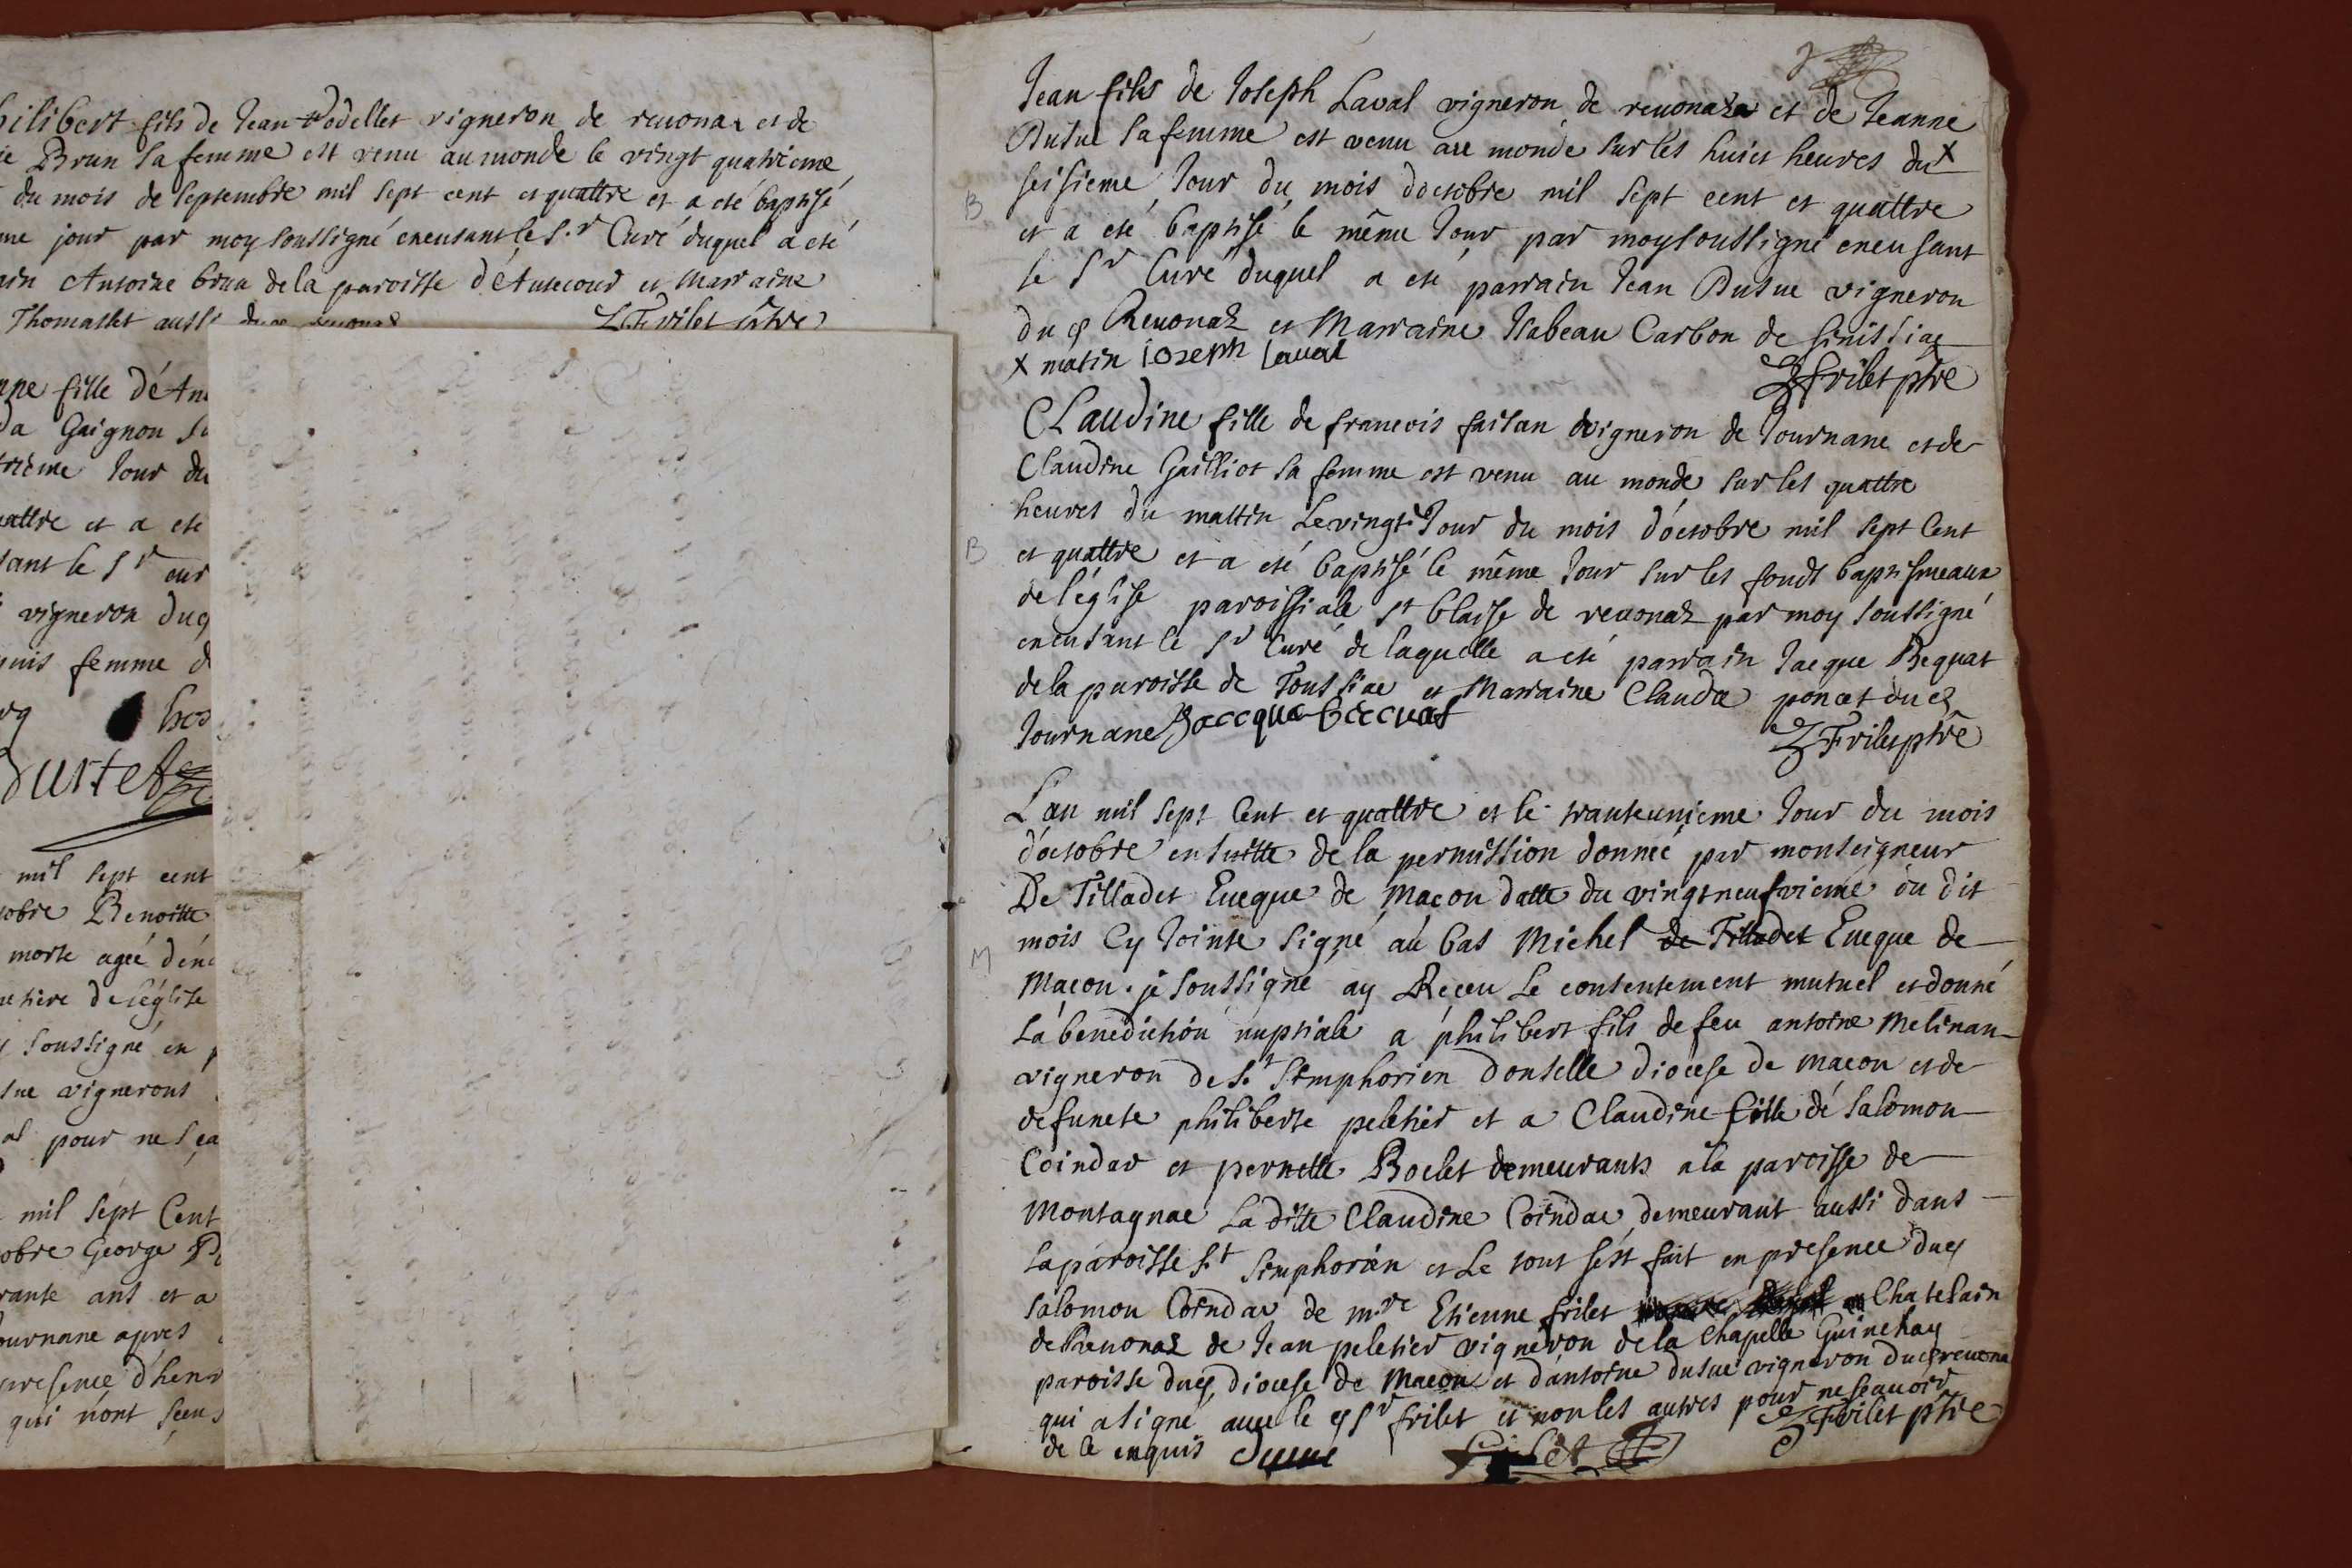 hilibert fils de Jean Podellet vigneron de reuonas et de
ie Brun sa femme est venu au monde le vingt quatrieme
du mois de septembre mil sept cent et quattre et a eté baptisé
me jour par moy soussigné encusant le S.r Curé duquel a eté
ain Antoine brun de la paroisse d'Autecour et Marraine
Thomasset aussi
L Frilet ptre
nne fille d'An
da Gaignon sa
trieme Jour du
uattre et a ete
sant le Sr cur
vigneron duq
quis femme d
hos
Durtet
mil sept cent
tobre Benoitte
morte ageé d'en
metiere de l'église
soussigné en p
sue vignerons
al pour ne sça
mil sept Cent
tobre George
rante ans et a
tournane apres
presence d'henr
qui n'ont sceu
Jean fils de Joseph Laval vigneron de reuonaz et de Jeanne
Dusue sa femme est venu au monde sur les huict heures du X
seisieme Jour du mois d'octobre mil sept cent et quattre
B
et a eté baptisé le même Jour par moy soussigné encusant
le Sr Curé duquel a eté parrain Jean Dusue vigneron
du q Reuonaz et Marraine Isabeau Carbon de sinissiac
X matin ioseph laual
frilet ptre
Claudine fille de francois faisan vigneron de Journane et de
Claudine Gailliot sa femme est venu au monde sur les quattre
heures du mattin Le vingt Jour du mois d'octobre mil sept Cent
B
et quattre et a eté baptisé le même Jour sur les fonds baptismeaux
de l'église paroissiale St blaise de reuonaz par moy soussigné
encusant le Sr Curé de laquelle a eté parrain Jacque Bequat
de la paroisse de Toussiae et Marraine Clauda poncet du q
Journane Jaccque beccuat
Frilet ptre
L'an mil sept Cent et quattre et le trantunieme Jour du mois
d'octobre ensuitte de la permission donneé par monseigneur
De Tilladet Eueque de Macon datte du vingt neufvieme du dit
M
mois Cy Jointe signé au bas Michel de Tilladet Eueque de
Macon. je soussigné ay Receu Le consentement mutuel et donné
La benediction nuptiale a philibert fils de feu antoine Melinan
vigneron de S.t Simphorien donselle diocese de macon et de
defuncte philiberte peletier et a Claudine fille de Salomon
Coindar et pernette Boclet demeurants a la paroisse de
Montagnae La ditte Claudine Coindac demeurant aussi dans
la paroisse S.t Simphorien et Le tout s'est fait en presence du q
Salomon Coindar de m.re Etienne frilet Chatelain
de Reuonaz de Jean peletier vigneron de la Chapelle Guinchay
paroisse du q diocese de Macon et d'antoine dusue vigneron du q reuona
qui a signé auec le q Sr frilet et non les autres pour ne scauoir
de ce enquis Dusue
Frilet
Frilet ptre